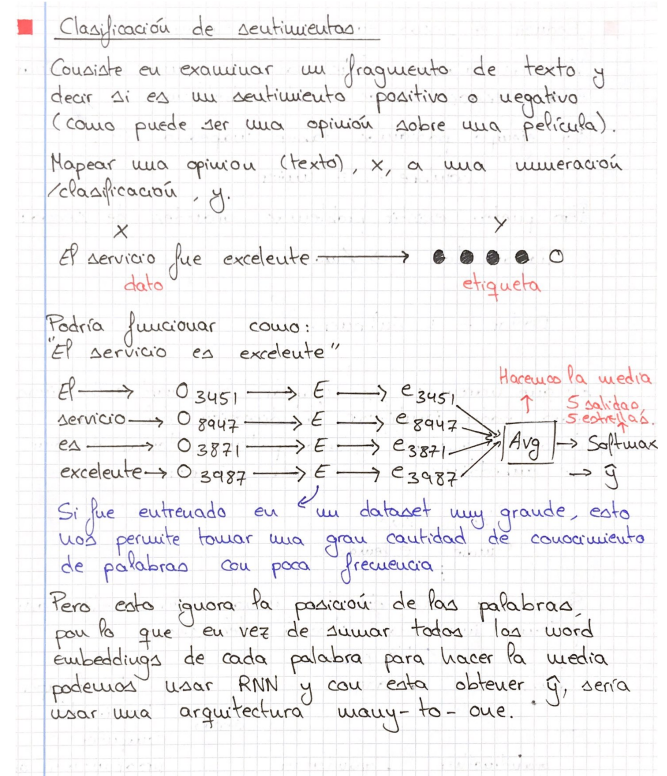 Clasificación de sentimientos.
Consiste en examinar un fragmento de texto y
decir si es un sentimiento positivo o negativo
(como puede ser una opinión sobre una película).
Mapear una opinion (texto), x, a una numeración
/clasificación, y.
X Y
El servicio fue excelente
dato etiqueta
Podría funcionar como:
"El servicio es excelente"
Hacemos la media
El → O 3451 → E → e 3451
5 salidas,
5 estrellas.
servicio → O 8947 → E → e 8947
es → O 3871 → E → e 3871 Avg → Softmax
excelente → O 3987 → E → e 3987 → ŷ
Si fue entrenado en un dataset muy grande, esto
nos permite tomar una gran cantidad de conocimiento
de palabras con poca frecuencia.
Pero esto ignora la posición de las palabras,
pon lo que en vez de sumar todos los word
embeddings de cada palabra para hacer la media
podemos usar RNN y con esta obtener ŷ, sería
usar una arquitectura many-to-one.